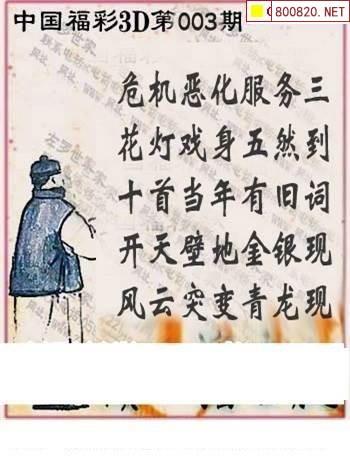 中国福彩3D第003期
800820.NET
危机恶化服务三
花灯戏身五然到
十首当年有旧词
开天壁地金银现
风云突变青龙现